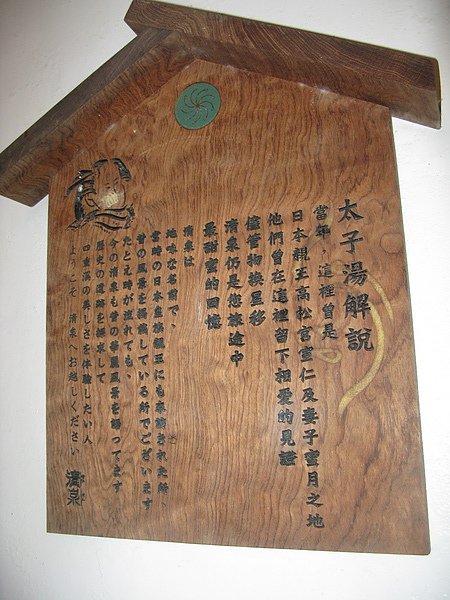 太子湯解說
當年，這裡曾是
日本親王高松宮宣仁及妻子蜜月之地
他們曾在這裡留下相愛的見證
儘管物換星移
清泉仍是您旅途中
最甜蜜的回憶
清泉は
地味な名前で、
當時の日本皇族親王にも された所、
昔の風景を している所でございます
たとえ時が流れても、
今の清泉も昔の華麗風景を語ってます
歴史の遺跡を探求して
四重溪の美しさを体験したい人
ようこそ 清泉へお越しください
清泉